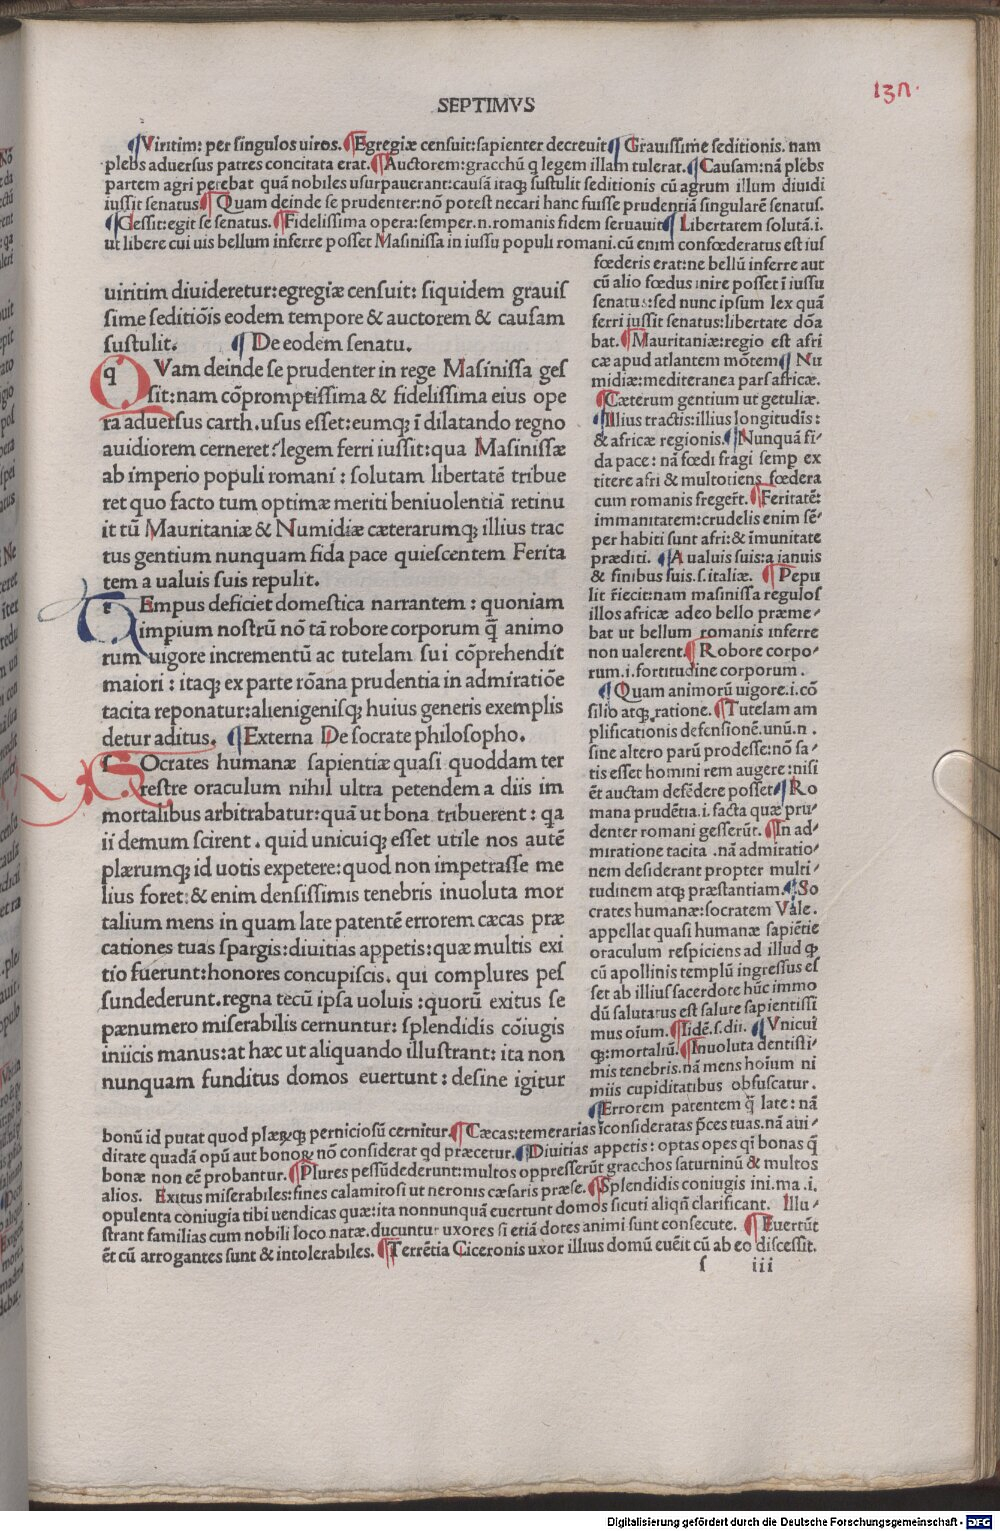 SEPTIMVS
137.
¶Viritim: per singulos uiros. ¶Egregiæ censuit: sapienter decreuit ¶Grauissime seditionis. nam
plebs aduersus patres concitata erat. ¶Auctorem: gracchū q legem illam tulerat. ¶Causam: nā plebs
partem agri petebat quā nobiles usurpauerant: causā itaq; sustulit seditionis cū agrum illum diuidi
iussit senatus ¶Quam deinde se prudenter: nō potest necari hanc fuisse prudentiā singularē senatus.
¶Gessit: egit se senatus. ¶Fidelissima opera: semper .n. romanis fidem seruauit ¶Libertatem solutā .i.
ut libere cui uis bellum inferre posset Masinissa in iussu populi romani. cū enim confœderatus est ius
uiritim diuideretur: egregiæ censuit: siquidem grauis
sime seditiōis eodem tempore & auctorem & causam
sustulit. ¶De eodem senatu.
QVam deinde se prudenter in rege Masinissa ges
sit: nam cōpromptissima & fidelissima eius ope
ra aduersus carth. usus esset: eumq; ī dilatando regno
auidiorem cerneret? legem ferri iussit: qua Masinissæ
ab imperio populi romani: solutam libertatē tribue
ret quo facto tum optimæ meriti beniuolentiā retinu
it tū Mauritaniæ & Numidiæ cæterarumq; illius trac
tus gentium nunquam fida pace quiescentem Ferita
tem a ualuis suis repulit.
TEmpus deficiet domestica narrantem: quoniam
impium nostrū nō tā robore corporum q̄ animo
rum uigore incrementū ac tutelam sui cōprehendit
maiori: itaq; ex parte rōana prudentia in admiratiōe
tacita reponatur: alienigenisq; huius generis exemplis
detur aditus. ¶Externa De socrate philosopho.
SOcrates humanæ sapientiæ quasi quoddam ter
restre oraculum nihil ultra petendem a diis im
mortalibus arbitrabatur: quā ut bona tribuerent: qa
ii demum scirent. quid unicuiq; esset utile nos autē
plærumq; id uotis expetere: quod non impetrasse me
lius foret: & enim densissimis tenebris inuoluta mor
talium mens in quam late patentē errorem cæcas præ
cationes tuas spargis: diuitias appetis: quæ multis exi
tio fuerunt: honores concupiscis. qui complures pes
sundederunt. regna tecū ipsa uoluis: quorū exitus se
pænumero miserabilis cernuntur: splendidis cōiugis
iniicis manus: at hæc ut aliquando illustrant: ita non
nunquam funditus domos euertunt: desine igitur
fœderis erat: ne bellū inferre aut
cū alio fœdus inire posset ī iussu
senatus: sed nunc ipsum lex quā
ferri iussit senatus: libertate dōa
bat. ¶Mauritaniæ: regio est afri
cæ apud atlantem mōtem ¶Nu
midiæ: mediteranea pars africæ.
¶Cæterum gentium ut getuliæ.
¶Illius tractis: illius longitudīs:
& africæ regionis. ¶Nunquā fi-
da pace: nā fœdi fragi semp ex
titere afri & multotiens fœdera
cum romanis fregert̄. ¶Feritatē:
immanitatem: crudelis enim sē-
per habiti sunt afri: & īmunitate
præditi. ¶A ualuis suis: a ianuis
& finibus suis .s. italiæ. ¶Pepu
lit r̄iecit: nam masinissa regulos
illos africæ adeo bello præme-
bat ut bellum romanis inferre
non ualerent. ¶Robore corpo-
rum .i. fortitudine corporum.
¶Quam animorū uigore .i. cō
silio atq; ratione. ¶Tutelam am
plificationis defensionē. unū .n.
sine altero parū prodesse: nō sa-
tis esset homini rem augere: nisi
ēt auctam defēdere posset ¶Ro
mana prudētia .i. facta quæ pru-
denter romani gesserūt. ¶In ad-
miratione tacita. nā admiratio-
nem desiderant propter multi-
tudinem atq; præstantiam. ¶So
crates humanæ: socratem Vale.
appellat quasi humanæ sapiētie
oraculum respiciens ad illud ꝙ
cū apollinis templū ingressus es
set ab illius sacerdote hūc immo
dū salutatus est salute sapientissi
mus oīum. ¶Iidē .s. dii. ¶Vnicui
q;: mortaliū. ¶Inuoluta dentissi-
mis tenebris. nā mens hoīum ni
miis cupiditatibus obfuscatur.
¶Errorem patentem q̄ late: nā
bonū id putat quod plærūq; perniciosū cernitur. ¶Cæcas: temerarias īconsideratas p̄ces tuas. nā aui-
ditate quadā opū aut bonoꝝ nō considerat qd præcetur. ¶Diuitias appetis: optas opes qī bonas q̄
bonæ non eē probantur. ¶Plures pessūdederunt: multos oppresserūt gracchos saturninū & multos
alios. Exitus miserabiles: fines calamitosi ut neronis cæsaris præse. ¶Splendidis coniugis ini. ma .i.
opulenta coniugia tibi uendicas quæ: ita nonnunquā euertunt domos sicuti aliqn̄ clarificant. Illu-
strant familias cum nobili loco natæ. ducuntur uxores si etiā dotes animi sunt consecute. ¶Euertūt
ēt cū arrogantes sunt & intolerabiles. ¶Terrētia Ciceronis uxor illius domū euēit cū ab eo discessit.
s iii
Digitalisierung gefördert durch die Deutsche Forschungsgemeinschaft - DFG